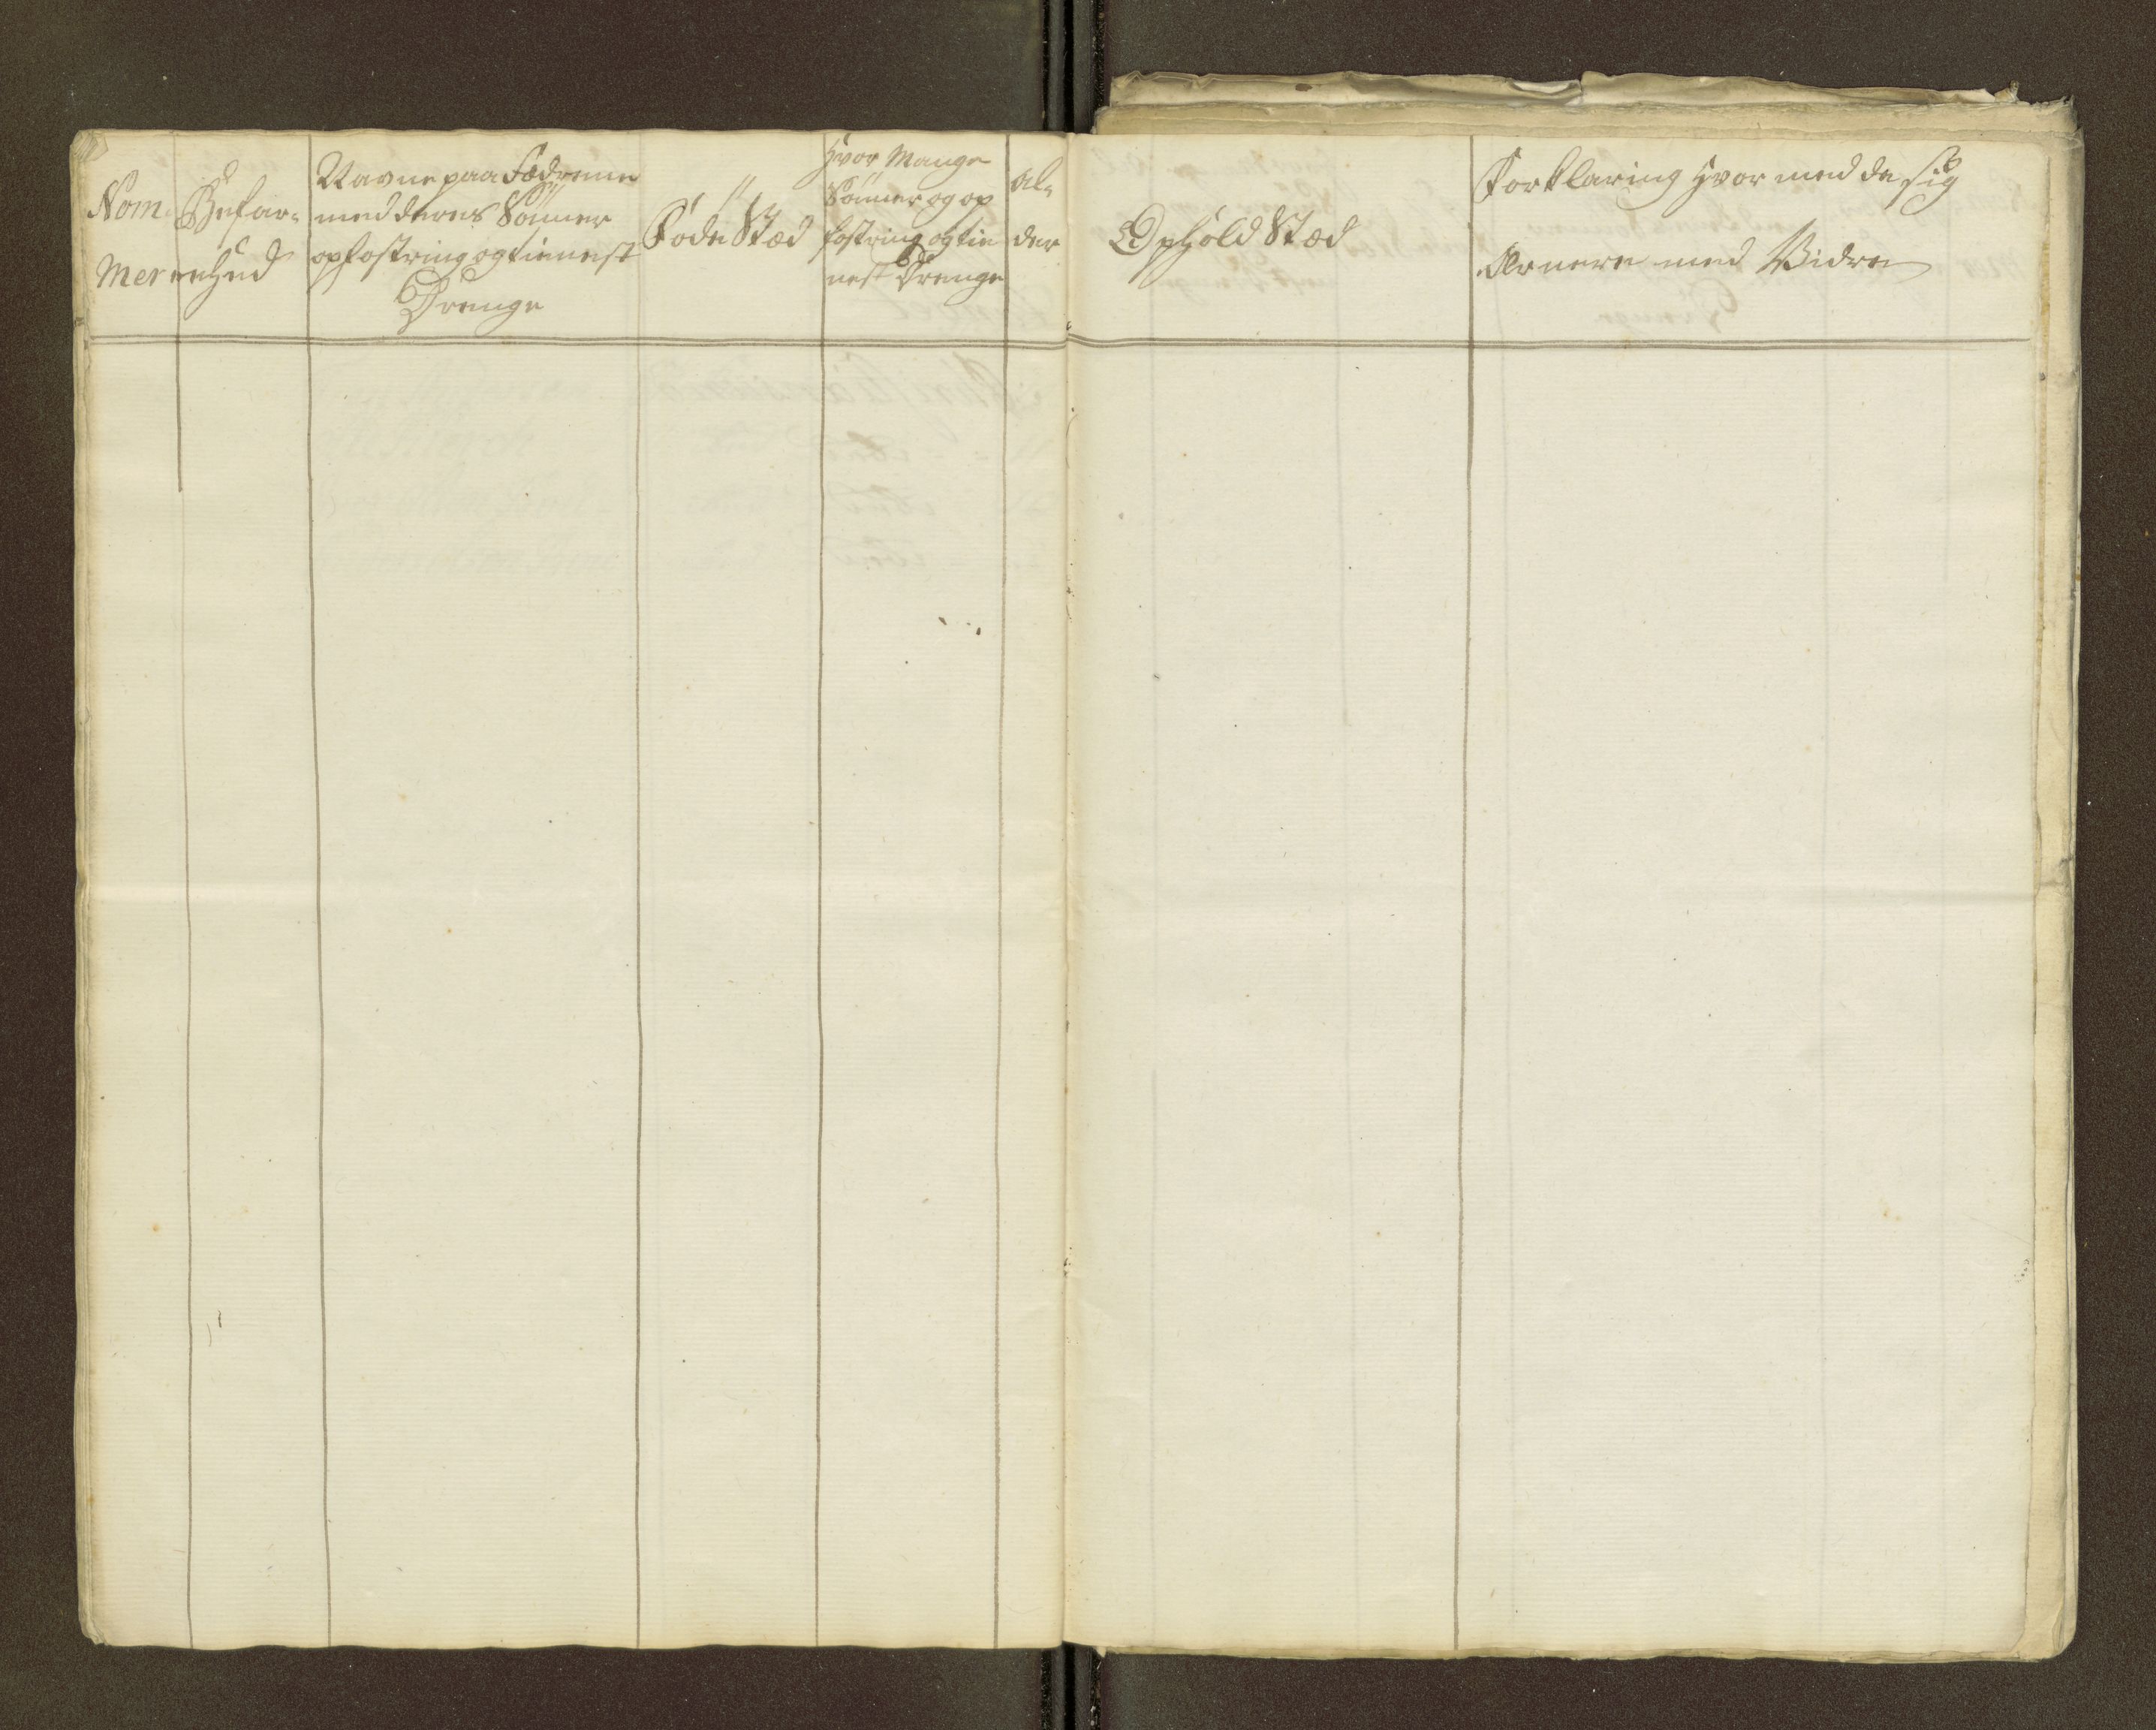 Nom-
Mer
Befar-
enhed
Navne paa Fædrene
med deres Sönner
opfostring og tienest
Drenge
Föde Stæd
hvor Mange
Sönner og op
fostring og tie
nest Drenge
Al-
der
Ophold Stæd
Forklaring hvor med de sig
Ernere med Vidre